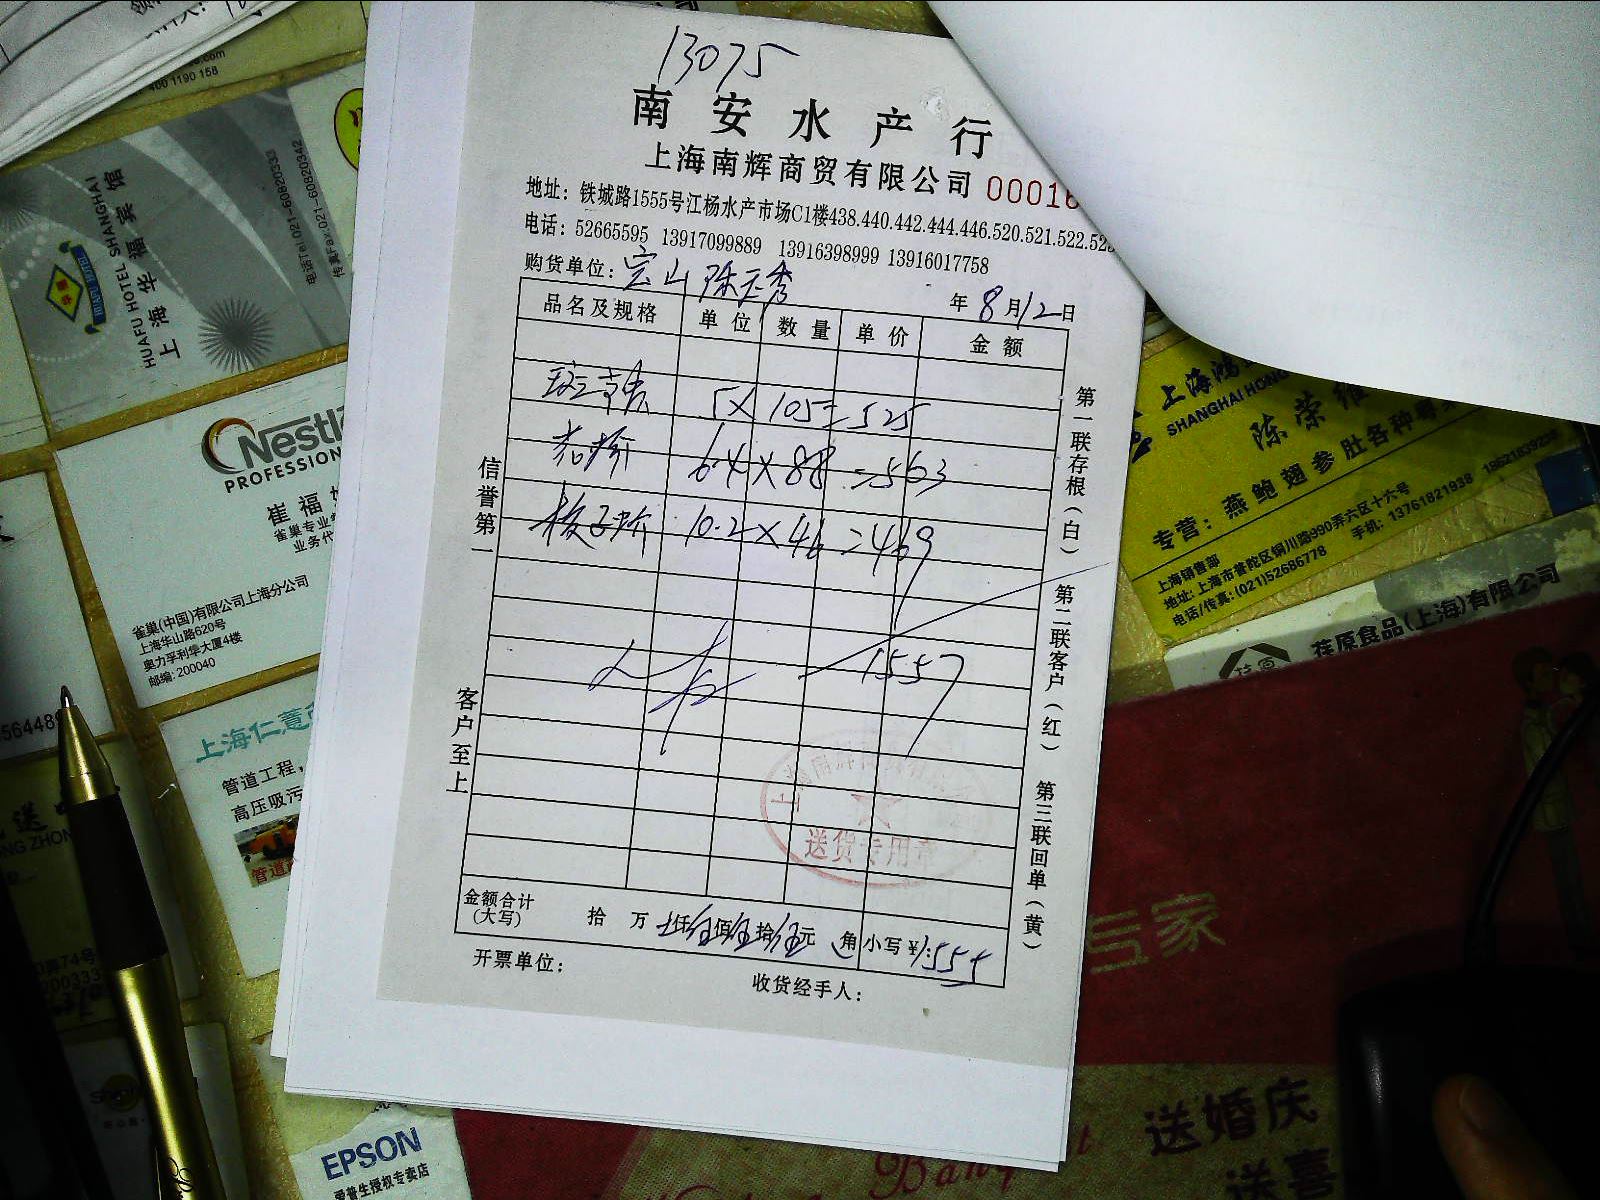 13075
南安水产行
上海南辉商贸有限公司 00016
地址：铁城路1555号江杨水产市场C1楼438.440.442.444.446.520.521.522.52
电话：52665595 13917099889 13916398999 13916017758
购货单位：宝山
年 8月12日
品名及规格 单位 数量 单价 金额
5×105=525
6.4×88=563
10.2×46=469
1557
金额合计（大写） 拾 万 仟伍佰伍拾伍元 角 小写￥1555
开票单位：
收货经手人：
信誉第一
客户至上
第一联存根（白）
第二联客户（红）
第三联回单（黄）
送货专用章
400 1190 158
HUAFU HOTEL SHANGHAI
上海华福宾馆
电话Tel 021-60820333
传真Fax:021-60820342
Nestl
PROFESSION
崔福
雀巢专业
业务代
雀巢(中国)有限公司上海分公司
上海华山路620号
奥力孚利华大厦4楼
邮编:200040
上海仁薏
管道工程，
高压吸污
管道
EPSON
爱普生授权专卖店
上海鸿
SHANGHAI HONG
陈荣维
专营：燕鲍翅参肚各种
上海销售部
地址：上海市普陀区铜川路990弄六区十六号
电话/传真：(021)52686778 手机：13761821938 18621839258
荏原食品(上海)有限公司
专家
送婚庆
送喜